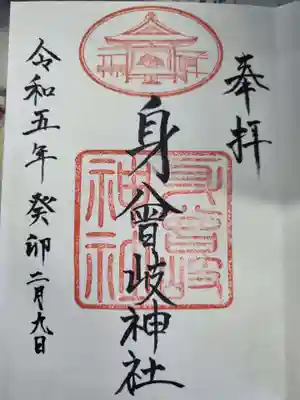 奉拝
身曾岐神社
身曾岐神社
令和五年癸卯二月九日